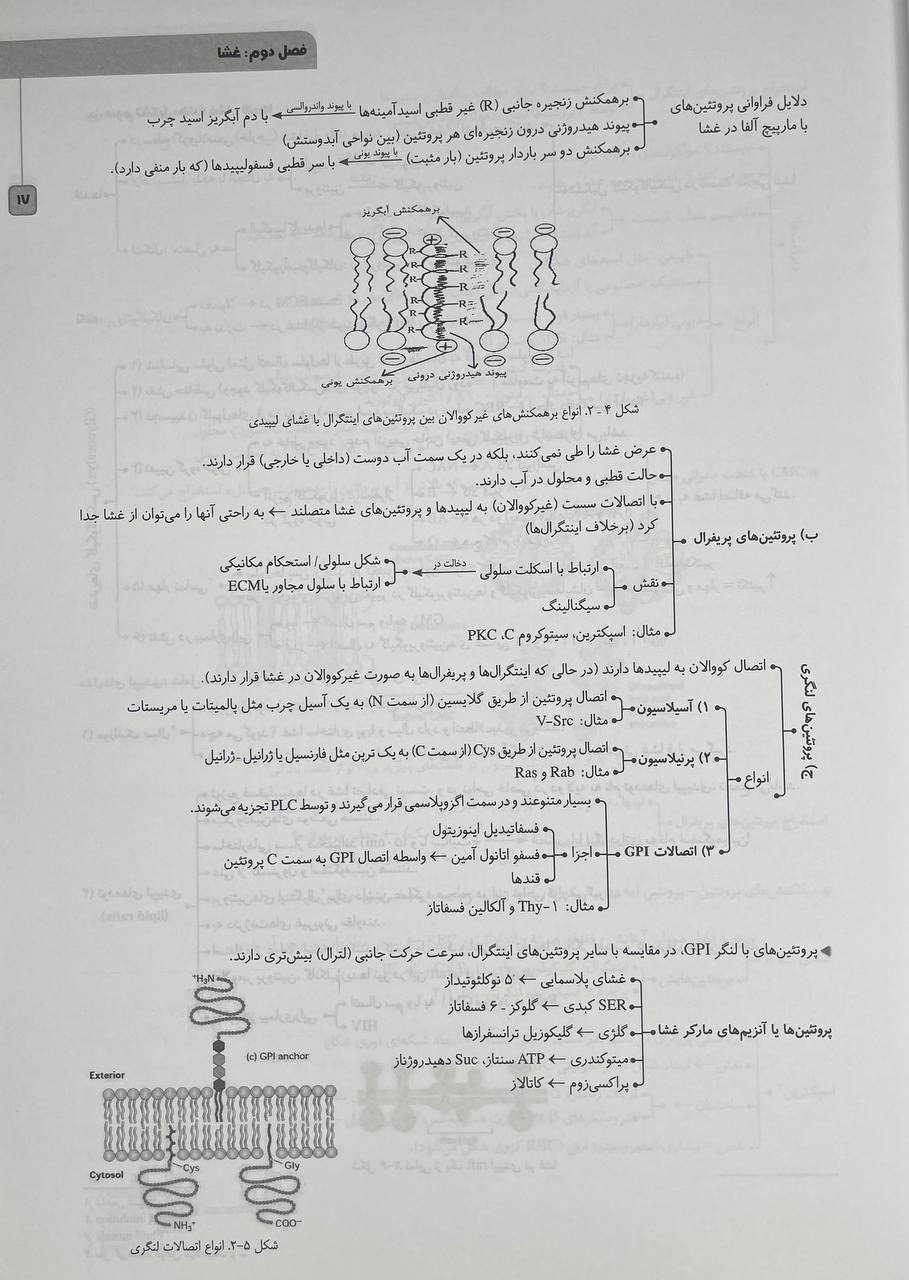 فصل دوم: غشا
۱۷
دلایل فراوانی پروتئین‌های
با مارپیچ آلفا در غشا
برهمکنش زنجیره جانبی (R) غیر قطبی اسیدآمینه‌ها با پیوند واندروالسی با دم آبگریز اسید چرب
پیوند هیدروژنی درون زنجیره‌ای هر پروتئین (بین نواحی آبدوستش)
برهمکنش دو سر باردار پروتئین (بار مثبت) با پیوند یونی با سر قطبی فسفولیپیدها (که بار منفی دارد).
برهمکنش آبگریز
R R R R R R
R R R R
پیوند هیدروژنی درونی
برهمکنش یونی
شکل ۴ - ۲. انواع برهمکنش‌های غیرکووالان بین پروتئین‌های اینتگرال با غشای لیپیدی
ب) پروتئین‌های پریفرال
عرض غشا را طی نمی‌کنند، بلکه در یک سمت آب دوست (داخلی یا خارجی) قرار دارند.
حالت قطبی و محلول در آب دارند.
با اتصالات سست (غیرکووالان) به لیپیدها و پروتئین‌های غشا متصلند ← به راحتی آنها را می‌توان از غشا جدا
کرد (برخلاف اینتگرال‌ها)
نقش
ارتباط با اسکلت سلولی دخالت در
شکل سلولی/ استحکام مکانیکی
ارتباط با سلول مجاور یا ECM
سیگنالینگ
مثال: اسپکترین، سیتوکروم C، PKC
ج) پروتئین‌های لنگری
اتصال کووالان به لیپیدها دارند (در حالی که اینتگرال‌ها و پریفرال‌ها به صورت غیرکووالان در غشا قرار دارند).
انواع
۱) آسیلاسیون
اتصال پروتئین از طریق گلایسین (از سمت N) به یک آسیل چرب مثل پالمیتات یا مریستات
مثال: V-Src
۲) پرنیلاسیون
اتصال پروتئین از طریق Cys (از سمت C) به یک ترپن مثل فارنسیل یا ژرانیل - ژرانیل
مثال: Rab و Ras
۳) اتصالات GPI
بسیار متنوعند و در سمت اگزوپلاسمی قرار می‌گیرند و توسط PLC تجزیه می‌شوند.
اجزا
فسفاتیدیل اینوزیتول
فسفو اتانول آمین ← واسطه اتصال GPI به سمت C پروتئین
قندها
مثال: Thy-1 و آلکالین فسفاتاز
پروتئین‌های با لنگر GPI، در مقایسه با سایر پروتئین‌های اینتگرال، سرعت حرکت جانبی (لترال) بیش‌تری دارند.
پروتئین‌ها یا آنزیم‌های مارکر غشا
غشای پلاسمایی ← ۵ نوکلئوتیداز
SER کبدی ← گلوکز - ۶ فسفاتاز
گلژی ← گلیکوزیل ترانسفرازها
میتوکندری ← ATP سنتاز، Suc دهیدروژناز
پراکسی‌زوم ← کاتالاز
⁺H₃N
(c) GPI anchor
Exterior
Cys
Gly
Cytosol
NH₃⁺
COO⁻
شکل ۵-۲. انواع اتصالات لنگری